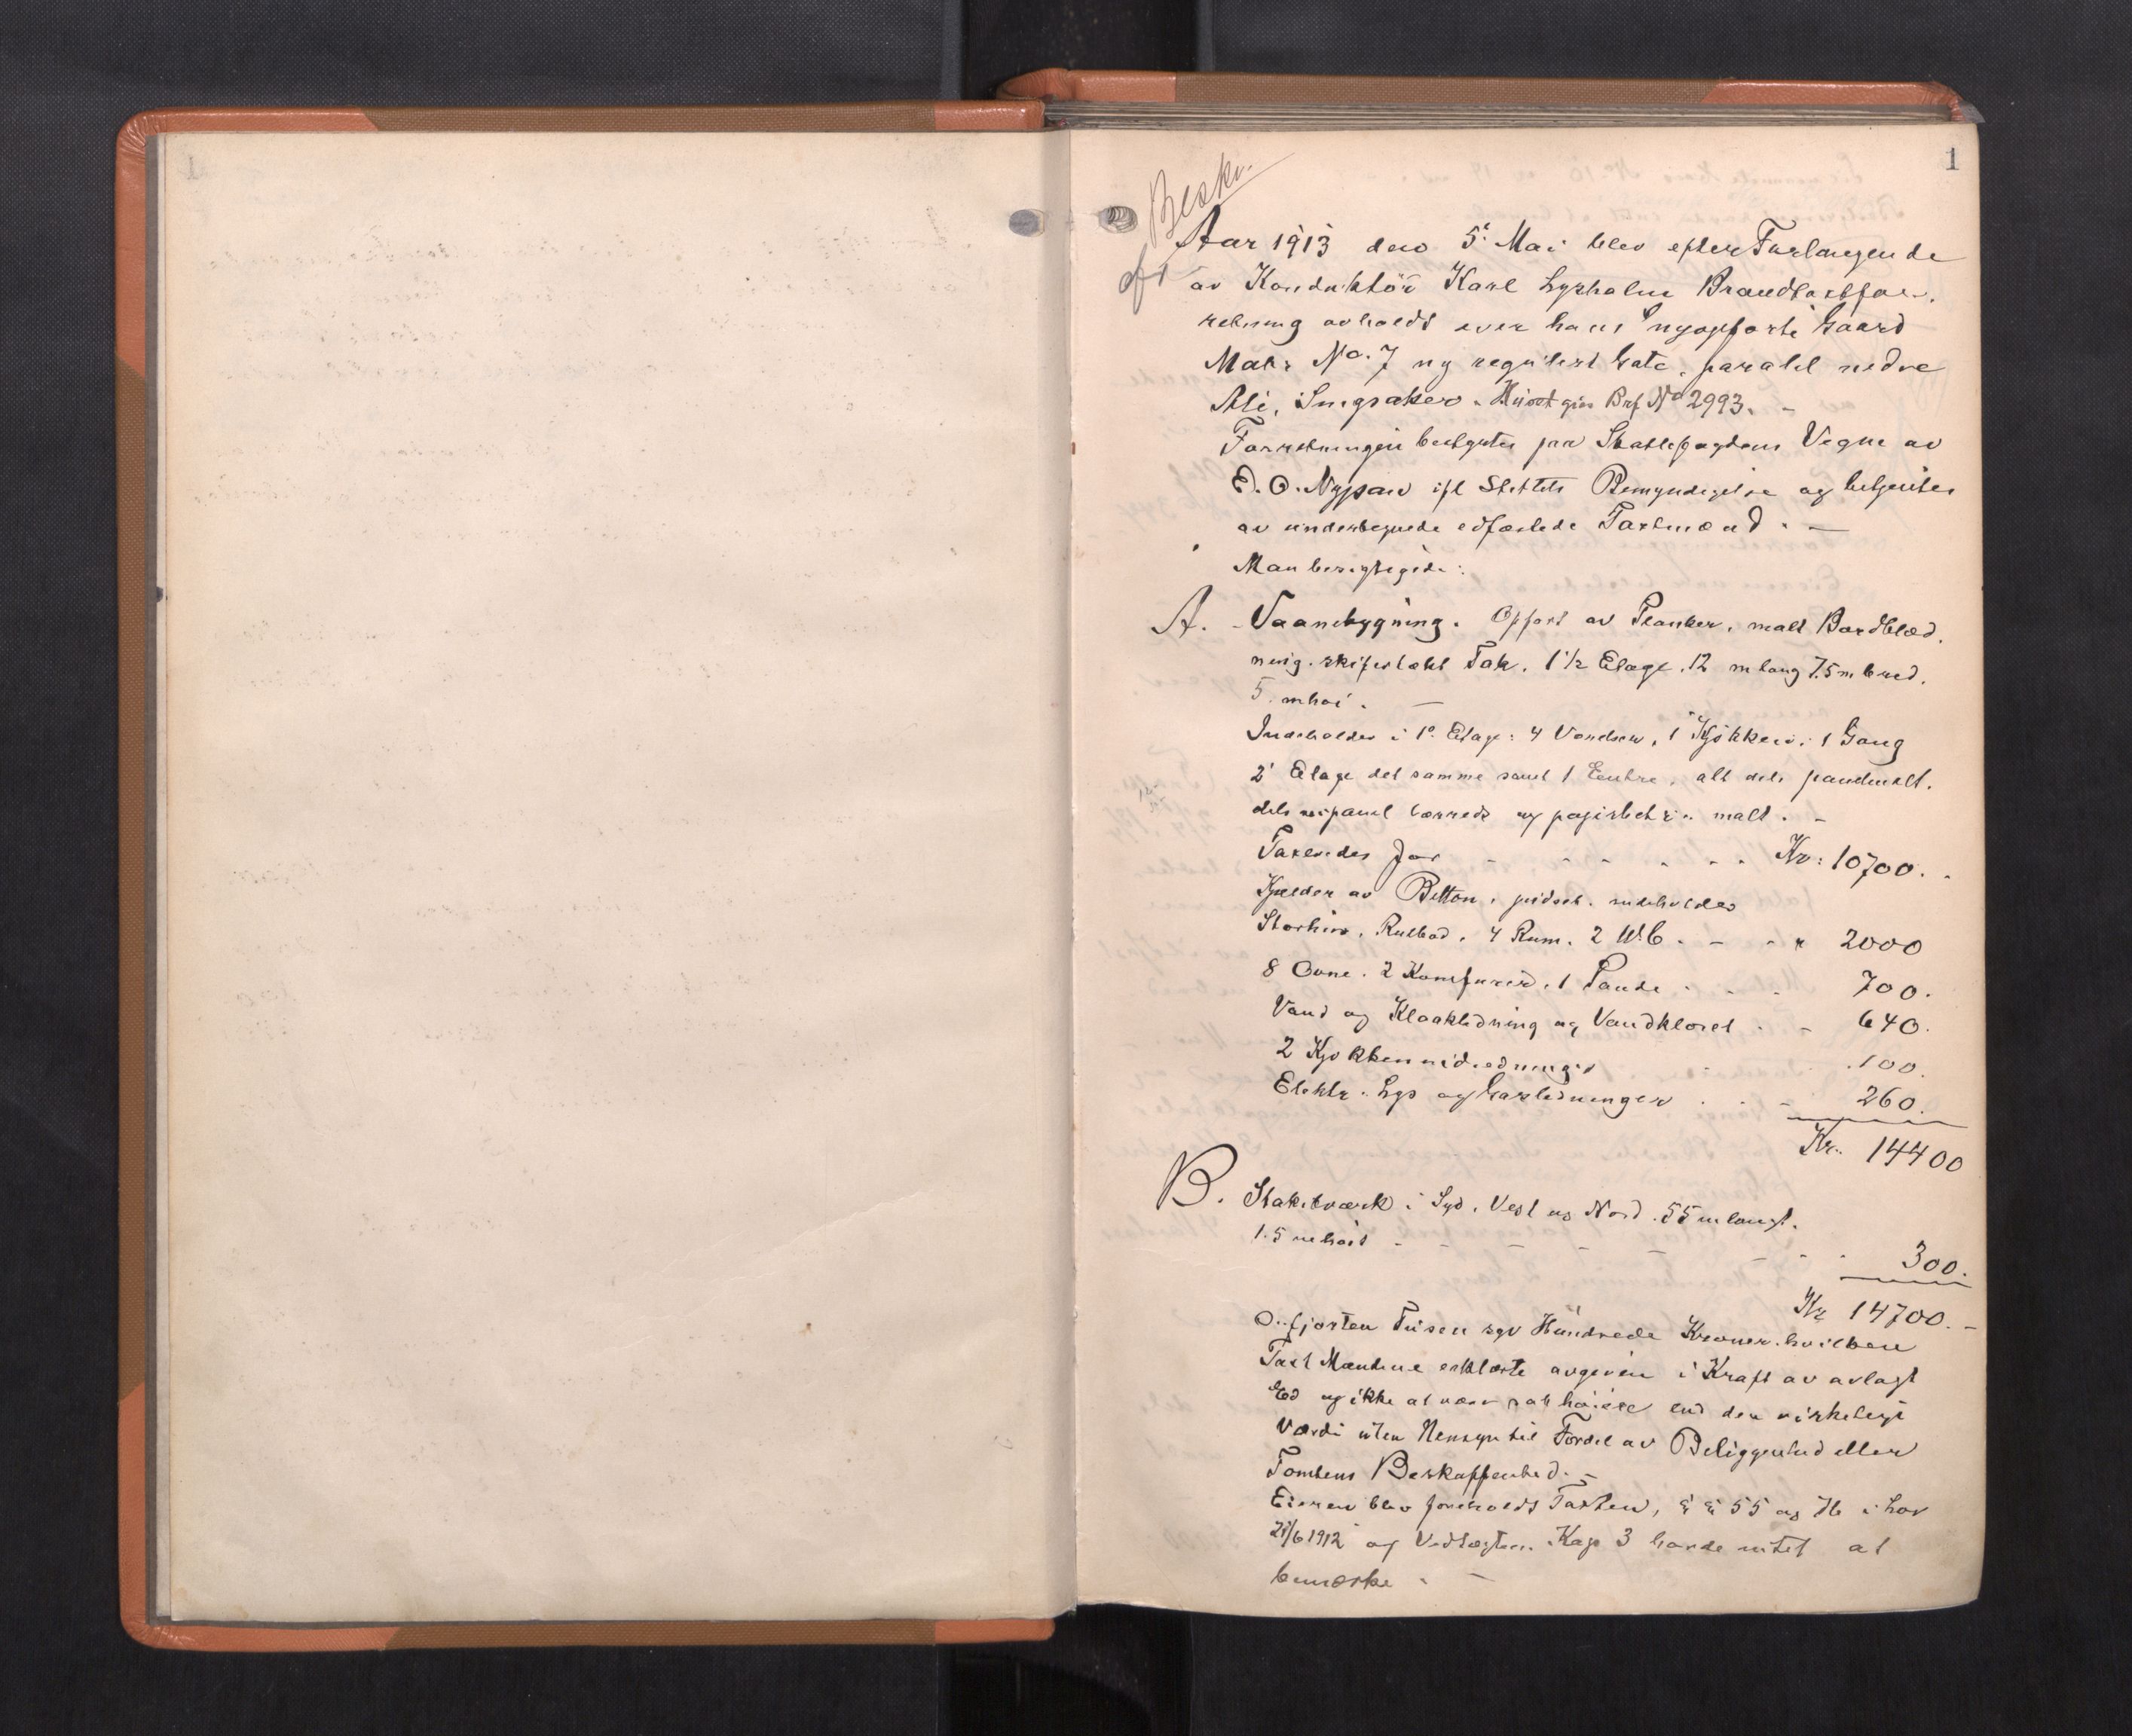 1
Beskr.
Aar 1913 den 5' Mai blev efter Forlangende
av Konduktör Karl Lysholm Brandtaxtfor-
retning avholdt over hans nyopførte Gaard
Matr No. 7 ny regulert Gate, paralel nedre
Alé, Singsaker. Brf No 2993. -
Forretningen bestyrtes paa Skattefogdens Vegne av
E. O. Nypan ifl Stiftets Bemyndigelse og betjentes
av undertegnede edfæstede Taxtmænd. -
Man besigtigede:
A. Vaanebygning. Opført av Planker, malt Bordklæd
ning. skifertækt Tak. 1 1/2 Etage. 12 m lang 7.5 m bred.
5. m høi. -
Indeholder i 1' Etage: 4 Værelser, 1 Kjøkken, 1 Gang
2' Etage det samme samt 1 Entre, alt dels panelmalt.
dels panel lærreds og papirbetr. malt. -
Taxeredes for - - - - Kr: 10700.
Kjelder av Betton, pudset. indeholder
Storhus, Rulbod, 4 Rum. 2 W.C. - - " 2000
8 Ovne. 2 Komfurer, 1 Pande - - - 700.
Vand og Kloakledning og Vandkloset - - 640.
2 Kjøkkenindredninger 100.
Elektr. Lys og Gasledninger - - - 260.
Kr. 14400
B. Stakitværk i Syd, Vest og Nord. 55 m langt.
1.5 m høit - - - - - - 300.
Kr 14700. -
fjorten Tusen syv Hundrede Kroner. hvilken
Taxt Mændene erklærte avgiven i Kraft av avlagt
Ed og ikke at være sat høiere end den virkelige
Værdi uten Hensyn til Fordel av Beliggenhed eller
Tomtens Beskaffenhed. -
Eieren blev foreholdt Taxten, §§ 55 og 76 i Lov
21/6 1912 og Vedtægten. Kap 3 havde intet at
bemærke. -